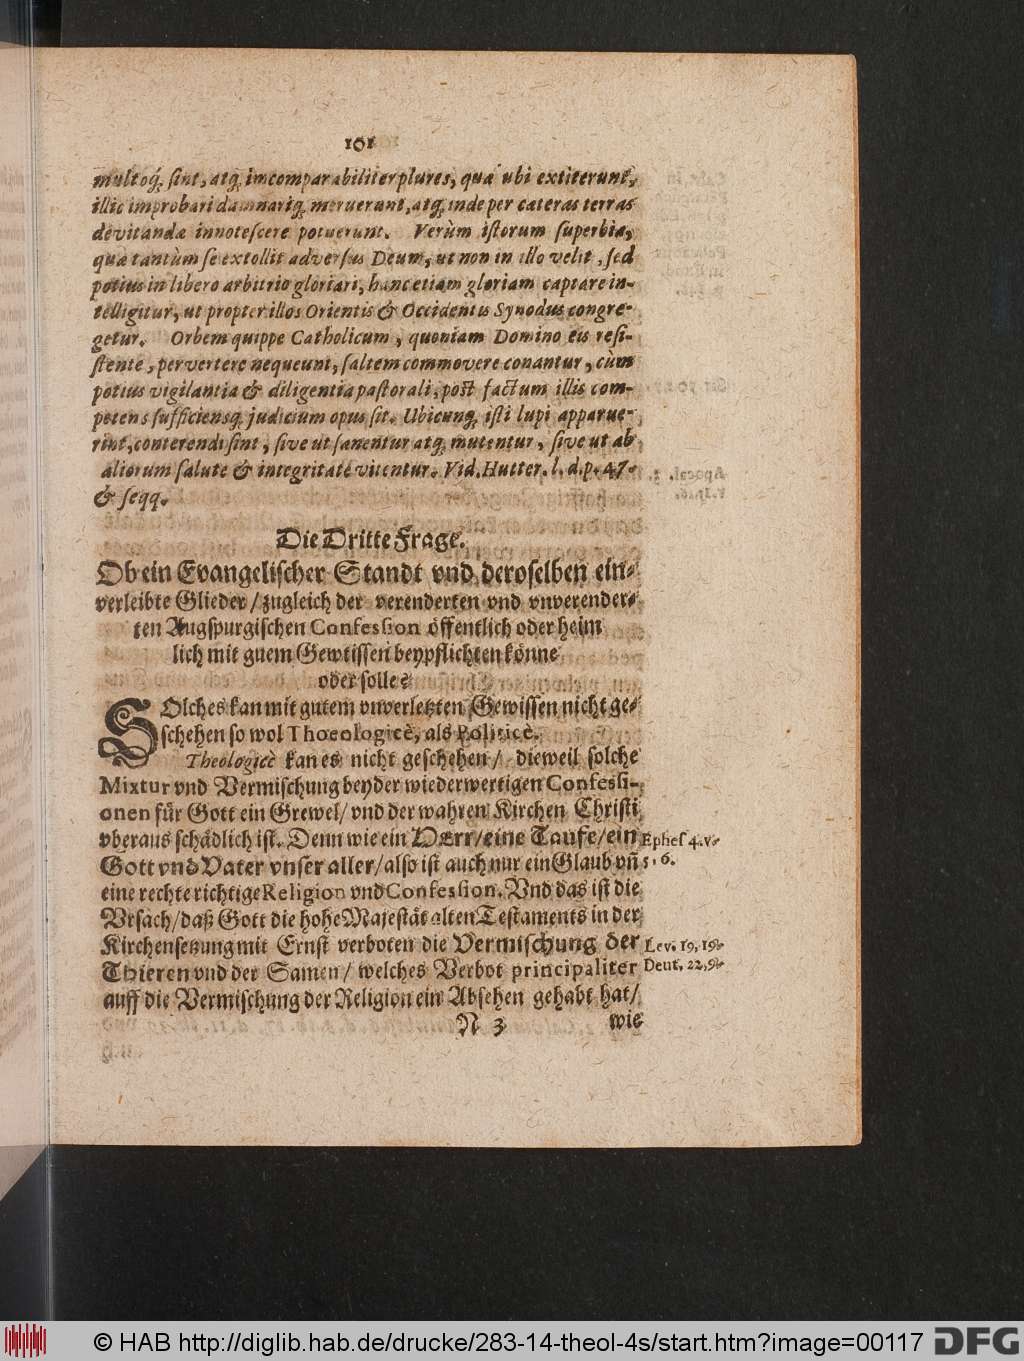 101
multoq́; sint, atq́; imcomparabiliter plures, quâ ubi extiterunt,
illic improbari damnariq́; meruerunt, atq́; inde per cateras terras
devitanda innotescere potuerunt. Verùm istorum superbia,
qua tantùm se extollit adversus Deum, ut non in illo velit, sed
potius in libero arbitrio gloriari, hanc etiam gloriam captare in-
telligitur, ut propter illos Orientis & Occidentis Synodus congre-
getur. Orbem quippe Catholicum, quoniam Domino eis resi-
stente, pervertere nequeunt, saltem commovere conantur, cùm
potius vigilantia & diligentia pastorali, post factum illis com-
petens sufficiensq́; judicium opus sit. Ubicunq́; isti lupi apparue-
rint, conterendi sint, sive ut sanentur atq́; mutentur, sive ut ab
aliorum salute & integritate vitentur. Vid. Hutter. l. d. p. 47.
& seqq.
Die Dritte Frage.
Ob ein Evangelischer Standt vnd deroselben ein-
verleibte Glieder / zugleich der verenderten vnd vnverender-
ten Augspurgischen Confession öffentlich oder heim
lich mit guem Gewtissen beypflichten könne
oder solle?
SOlches kan mit gutem vnverletzten Gewissen nicht ge-
schehen so wol Thoeologicè, als Politicè.
Theologicè kan es nicht geschehen / dieweil solche
Mixtur vnd Vermischung beyder wiederwertigen Confessi-
onen für Gott ein Grewel / vnd der wahren Kirchen Christi
vberaus schädlich ist. Denn wie ein HErr / eine Taufe / ein Ephes 4. v.
Gott vnd Vater vnser aller / also ist auch nur ein Glaub vñ 5. 6.
eine rechte richtige Religion vnd Confession. Vnd das ist die
Vrsach / daß Gott die hohe Majestät alten Testaments in der
Kirchensetzung mit Ernst verboten die Vermischung der Lev. 19, 19.
Thieren vnd der Samen / welches Verbot principaliter Deut. 22, 9.
auff die Vermischung der Religion ein Absehen gehabt hat /
N 3 wie
© HAB http://diglib.hab.de/drucke/283-14-theol-4s/start.htm?image=00117 DFG